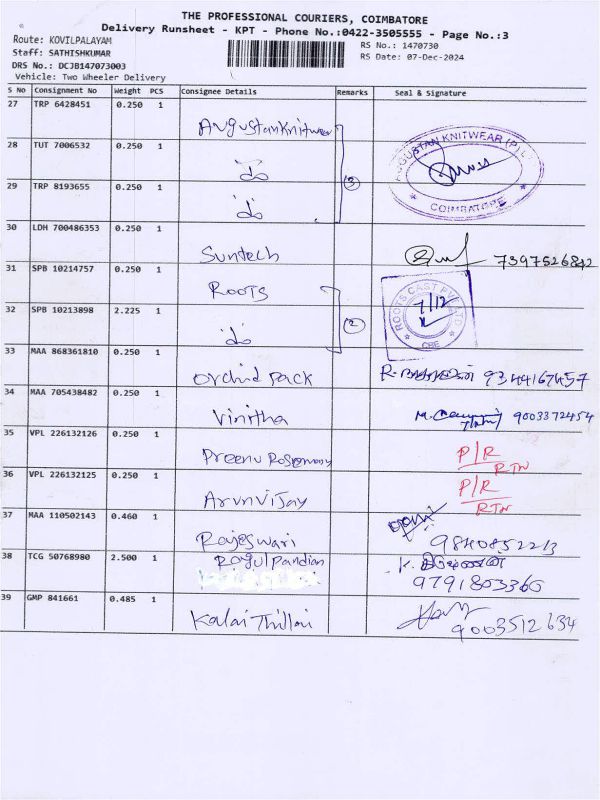 THE PROFESSIONAL COURIERS, COIMBATORE
Delivery Runsheet - KPT - Phone No.:0422-3505555 - Page No.:3
Route: KOVILPALAYAM
RS No.: 1470730
Staff: SATHISHKUMAR
RS Date: 07-Dec-2024
DRS No.: DCJB147073003
Vehicle: Two Wheeler Delivery
S No Consignment No Weight PCS Consignee Details Remarks Seal & Signature
27 TRP 6428451 0.250 1
Augustan Knitwear
28 TUT 7006532 0.250 1
do
29 TRP 8193655 0.250 1
do
3
AUGUSTAN KNITWEAR (P) L
COIMBATORE
30 LDH 700486353 0.250 1
Suntech 7397526842
31 SPB 10214757 0.250 1
Roots
32 SPB 10213898 2.225 1
do
2
ROOTS CAST PVT LTD
7/12
CBE
33 MAA 868361810 0.250 1
Orchid Pack 9344167457
34 MAA 705438482 0.250 1
Vinitha 9003372454
35 VPL 226132126 0.250 1
Preenu Rosemary P/R RTN
36 VPL 226132125 0.250 1
Arunvijay P/R RTN
37 MAA 110502143 0.460 1
Rajeswari 9840852213
38 TCG 50768980 2.500 1
Ragul pandian
9791803360
39 GMP 841661 0.485 1
Kalai Thillai 9003512634